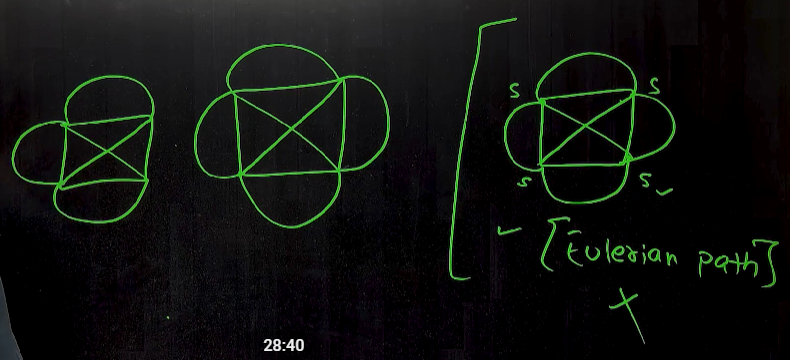 5 5
5 5
[Eulerian path]
28:40